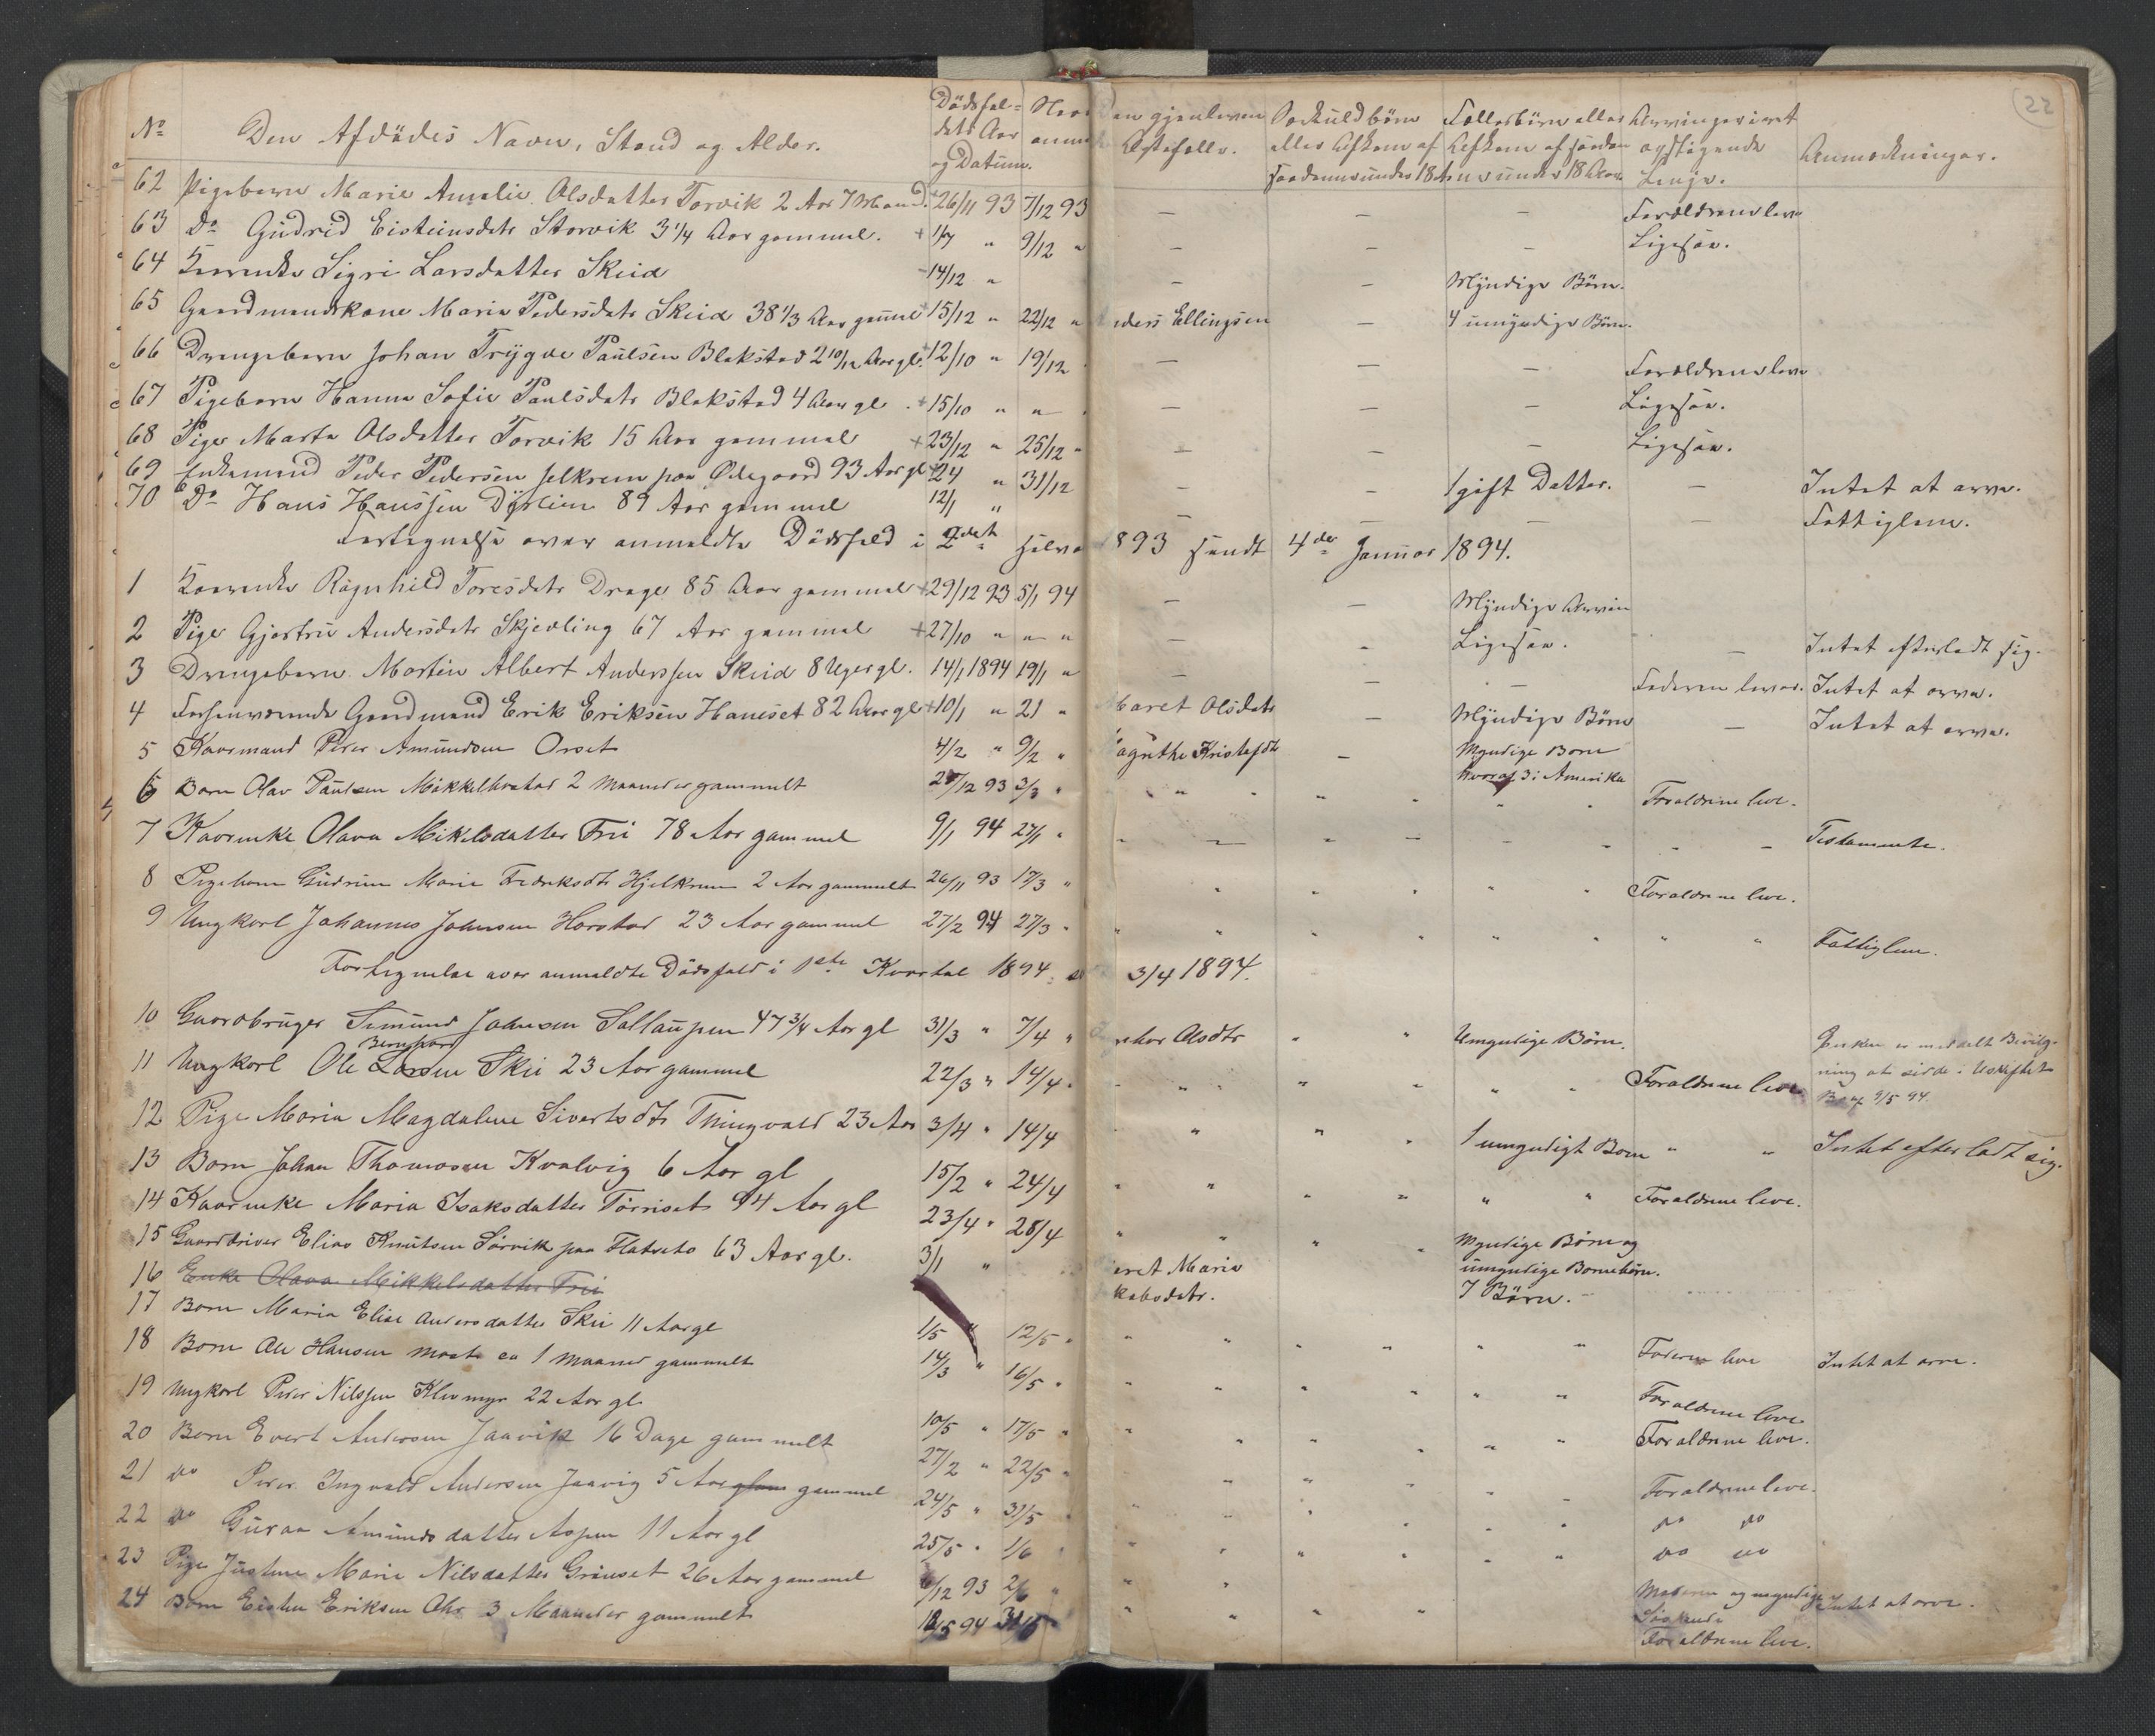 22
No Den Afdödes Navn, Stand og Alder. Dödsfal= dets Aar og Datum. Den gjenleven Ægtefælle. Særkuldbörn eller Afkom af saadanne under 18 Fællesbörn eller Afkom af saadan under 18 Aar. Arvinger i ret opstigende Linje. Anmærkninger.
62 Pigebarn Marie Amalie Olsdatter Torvik 2 Aar 7 Maand. 26/11 93 7/12 93 — — — Forældrene leve
63 Do Gudrid Eisteinsdatr Storvik 3 1/4 Aar gammel. + 1/7 " 9/12 " — — — Ligesaa.
64 Kaarenke Sigri Larsdatter Skeid 14/12 " — — Myndige Börn.
65 Gaardmandskone Maria Pedersdatr Skeid 38 1/3 Aar gammel + 15/12 " 22/12 " Anders Ellingsen — 4 umyndige Börn.
66 Drengebarn Johan Trygve Paulsen Blakstad 2 10/12 Aar gl. + 12/10 " 19/12 — — — Forældrene leve
67 Pigebarn Hanna Sofie Paulsdatr Blakstad 4 Aar gl. + 15/10 " " — — — Ligesaa.
68 Pige Marta Olsdatter Torvik 15 Aar gammel + 23/12 " 25/12 " — — — Ligesaa.
69 Enkemand Peder Pedersen Jelkrem paa Ödegaard 93 Aar gl + 24 " 31/12 — — 1 gift Datter. — Intet at arve.
70 Do Hans Hanssen Dyrlien 89 Aar gammel 12/1 " — — — — Fattiglem.
Fortegnelse over anmeldte Dödsfald i 2det Halvaar 1893 sendt 4de Januar 1894.
1 Kaarenke Ragnhild Toresdatr Drage 85 Aar gammel + 29/12 93 5/1 94 — — Myndige Arvin
2 Pige Gjertru Andersdatr Skjevling 67 Aar gammel + 27/10 " " " — — Ligesaa. — Intet efterladt sig.
3 Drengebarn Morten Albert Anderssen Skeid 8 Uger gl. 14/1 1894 19/1 " — — — Faderen lever. Intet at arve.
4 Forhenværende Gaardmand Erik Eriksen Haneset 82 Aar gl + 10/1 " 21 " Maret Olsdatr — Myndige Börn — Intet at arve.
5 Kaarmand Peder Amundsen Orset 4/2 " 9/2 " Magnthe Kristofdtr — Myndige Börn
hvoraf 3 i Amerika
6 Barn Olav Paulsen Mikkelbostad 2 Maaneder gammelt 27/12 93 3/3 " " " " " Forældrene leve.
7 Kaarenke Olava Mikelsdatter Fri 78 Aar gammel 9/1 94 27/1 " - - - - - - Testamente.
8 Pigebarn Gudrun Marie Fredriksdtr Hjelkrem 2 Aar gammelt 26/11 93 17/3 " " " " " Forældrene leve.
9 Ungkarl Johannes Johnsen Harstad 23 Aar gammel 27/2 94 27/3 " " " " " " " " Fattiglem.
Fortegnelse over anmeldte Dödsfald i 1ste Kvartal 1894, 3/4 1894.
10 Gaardbruger Simund Johnsen Sallaupen 47 3/4 Aar gl 31/3 " 7/4 " Olsdtr " " Umyndige Börn. Enken er meddelt Bevilg-
ning at sidde i Uskiftet
Bo af 9/5 94.
11 Ungkarl Ole Bernhard Larsen Skei 23 Aar gammel 22/3 " 14/4 " " " " " Forældrene leve
12 Pige Maria Magdalene Sivertsdtr Thingvald 23 Aar 3/4 " 14/4 " " " 1 umyndigt Barn " " Intet efterladt sig.
13 Barn Johan Thomassen Kvalvig 6 Aar gl 15/2 " 24/4 " " " " " " Forældrene leve.
14 Kaarenke Maria Isaksdatter Törriset 94 Aar gl 23/4 " 28/4 " " " " Myndige Börn og
umyndige Bornebörn.
15 Gaarddriver Elias Knutsen Sörvik paa Flatseto 63 Aar gl. 3/1 " Maria
kobsdatr. 7 Börn.
16 Enke Olava Mikkelsdatter Fri
17 Barn Maria Elise Andersdatter Skei 11 Aar gl 1/5 " 12/5 " " " " " " Faderen leve Intet at arve.
18 Barn Ole Hansen ca 1 Maaned gammelt 14/3 " 16/5 " " " " " " Forældrene leve
19 Ungkarl Peder Nilssen Klevmyr 22 Aar gl 10/5 " 17/5 " " " " " " Forældrene leve.
20 Barn Evert Andersen Jaavik 16 Dage gammelt 27/2 " 22/5 " " " " " Forældrene leve.
21 do Peder Ingvald Andersen Jaavig 5 Aar gammel 24/5 " 31/5 " " " " " do do
22 do Guraa Amundsdatter Aspen 11 Aar gl 25/5 " 1/6 " " " " " " do do
23 Pige Justine Marie Nilsdatter Grönset 26 Aar gammel 6/12 93 2/6 " " " Moderen og myndige Intet at arve.
Söskende
24 Barn Eisten Eriksen Ohr 3 Maaneder gammelt 12/5 94 31/5 " " " " Forældrene leve.